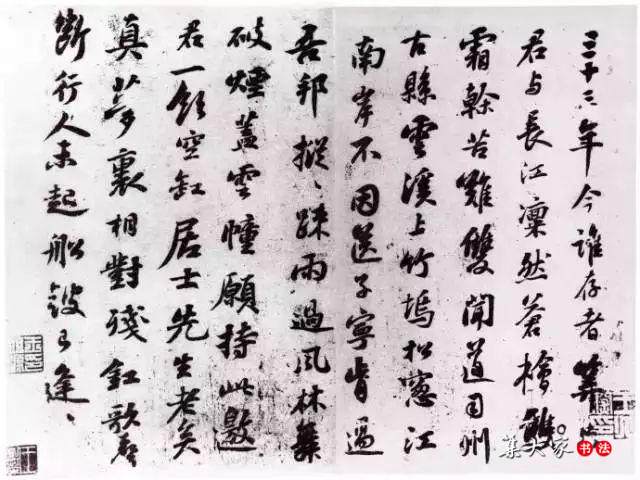 三十三年今誰存者算
君与長江凜然蒼檜
霜幹苦難雙聞道司州
古縣雲溪上竹塢松窓江
南岸不因送子寧肯過
吾邦摐、踈雨過風林舞
破煙蓋雲幢願持此邀
君一飲空缸居士先生老矣
真夢裏相對殘釭歌聲
斷行人未起船鼓已逢、
集大家 书法